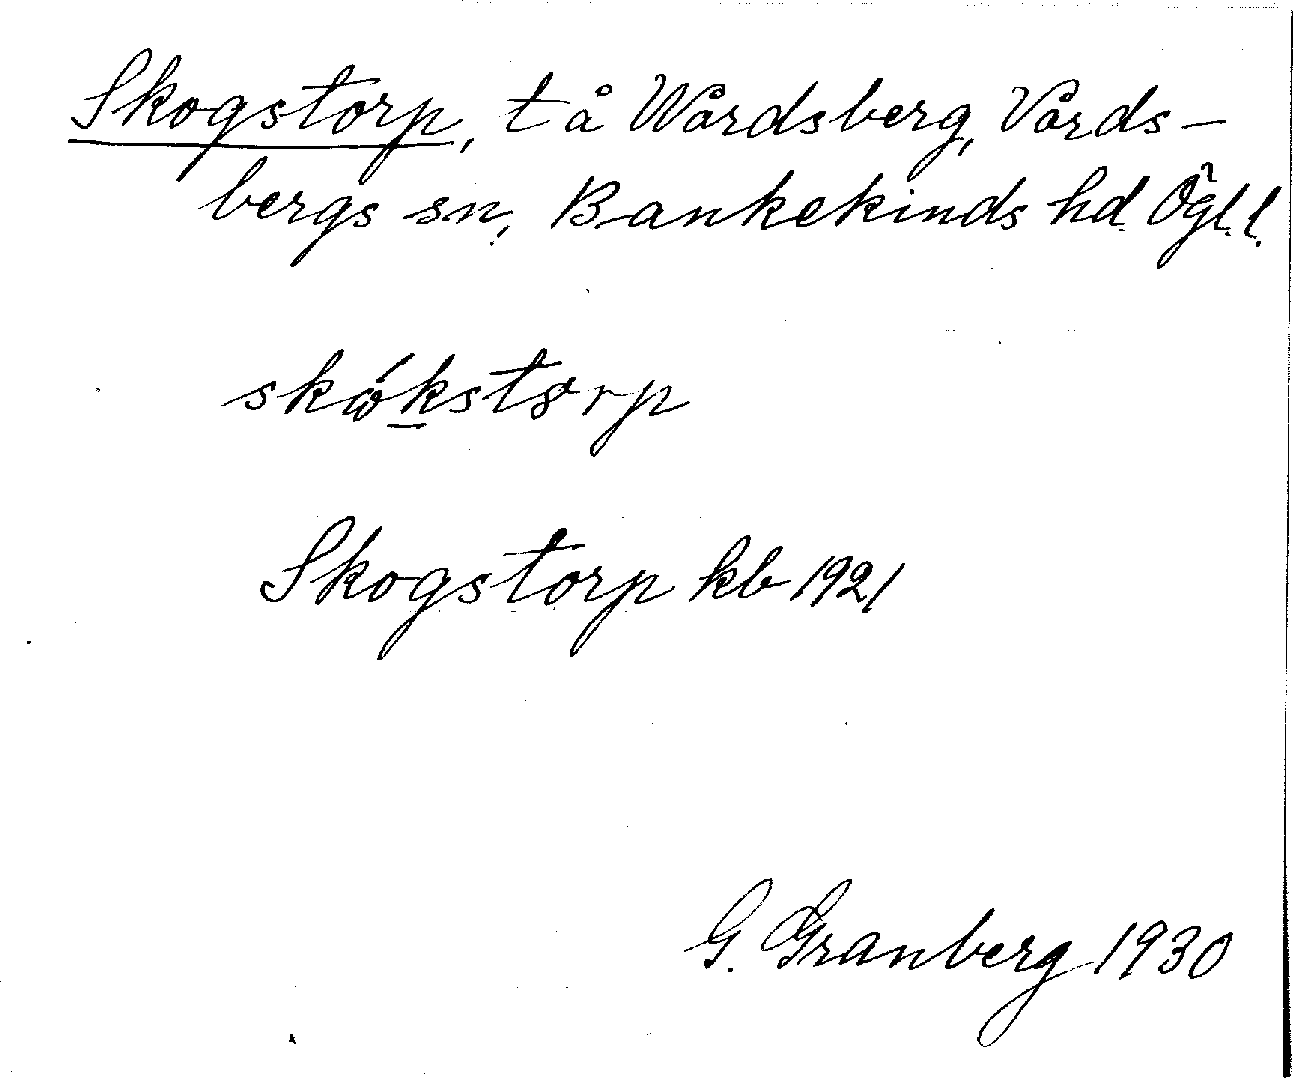 Skogstorp, t å Wårdsberg, Vårds-
bergs sn, Bankekinds hd Ögl. l.
skǿkstørp
Skogstorp kb 1921
G. Granberg 1930